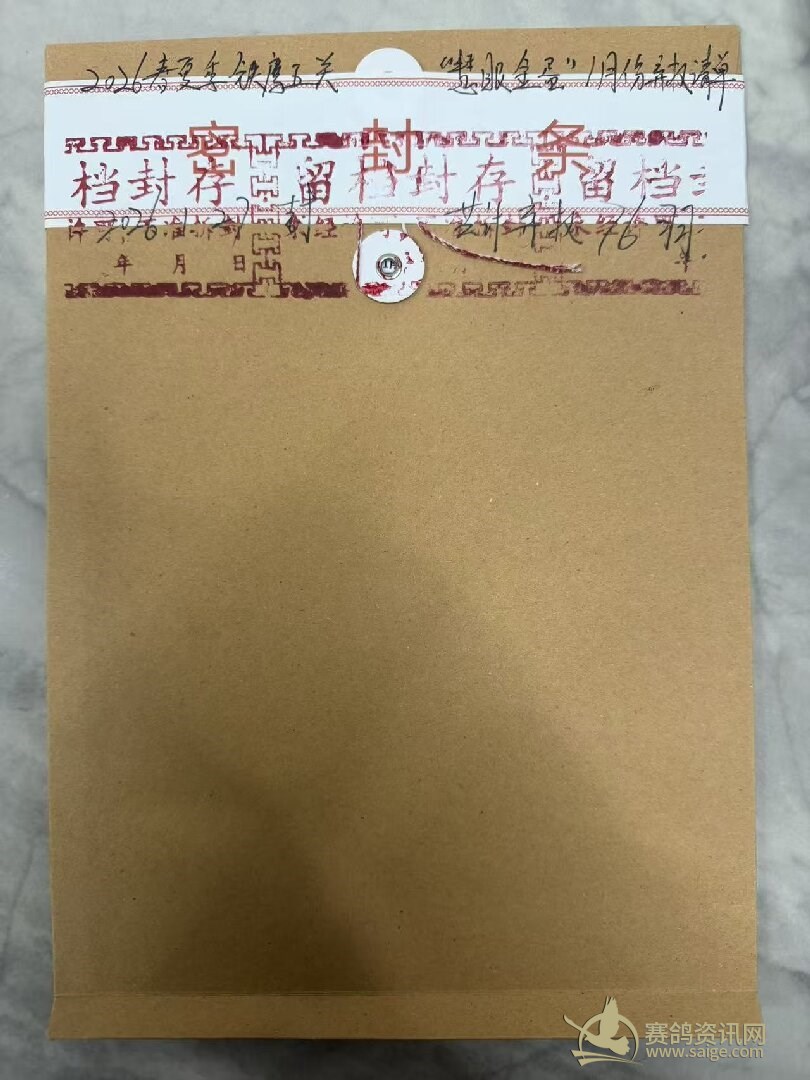 2026春夏季铁鹰五关 “慧眼金蛋”1月份弃权清单
密 封 条
档封存 留档封存 留档
2026.1.27 封 共计弃权 976 羽
年 月 日
赛鸽资讯网
www.saige.com